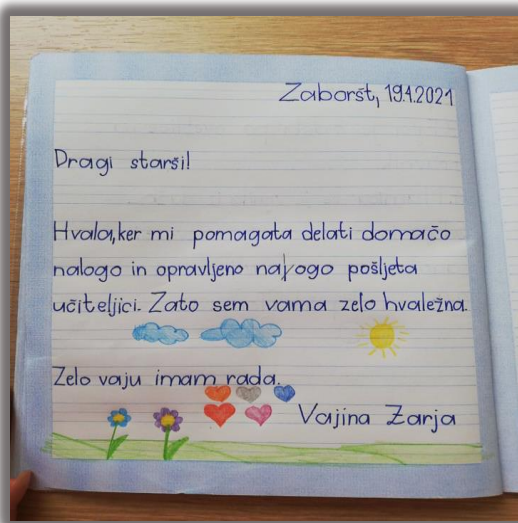 Zaboršt, 19.1.2021
Dragi starši!
Hvala, ker mi pomagata delati domačo
nalogo in opravljeno nalogo pošljeta
učiteljici. Zato sem vama zelo hvaležna.
Zelo vaju imam rada.
Vajina Zarja